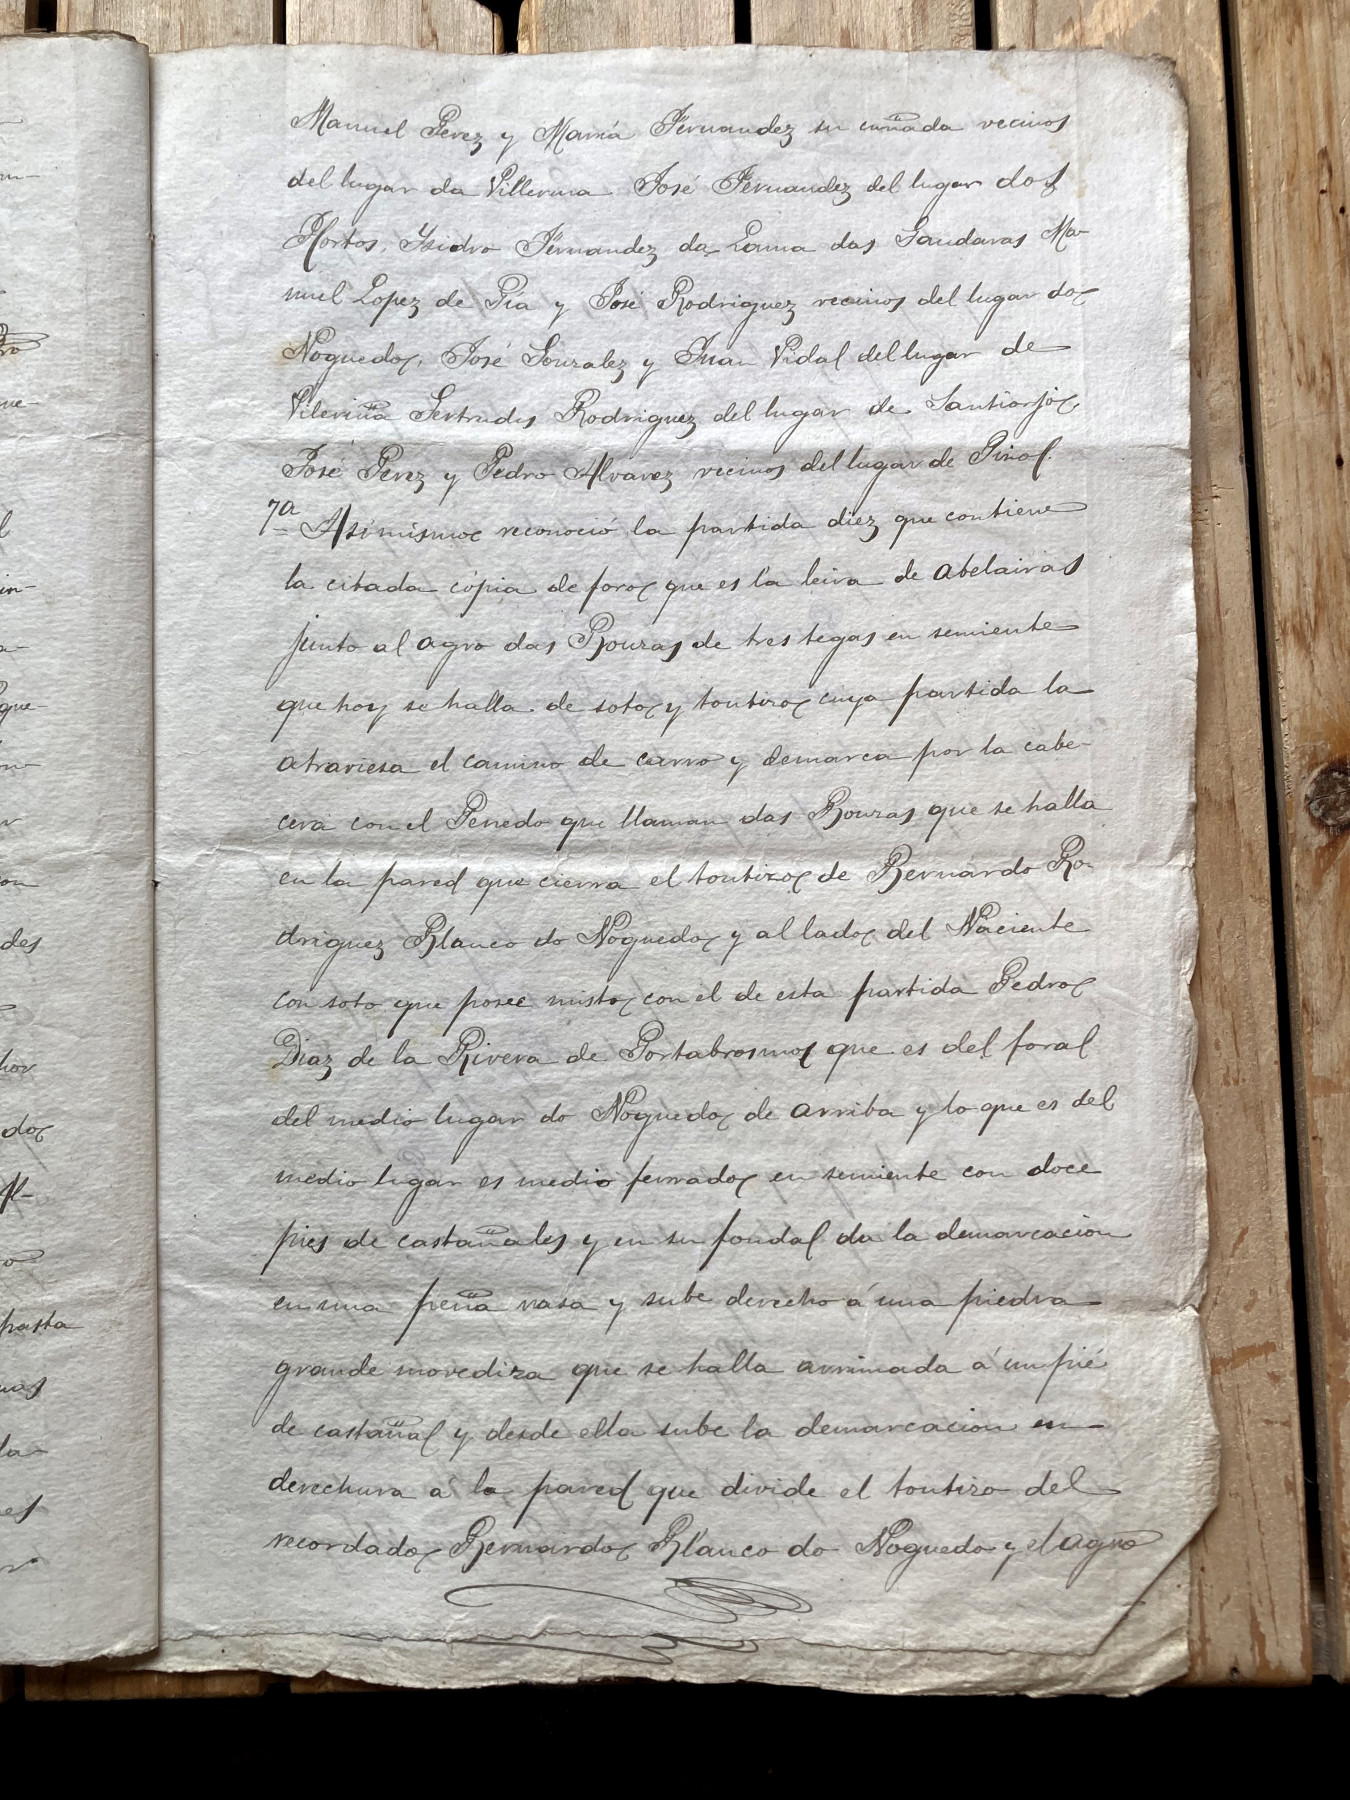 Manuel Perez y María Fernandez su cuñada vecinos
del lugar da Villerma José Fernandez del lugar dos
Hortos, Ysidro Fernandez da Lama das Gandaras Ma-
nuel Lopez de Pía y José Rodriguez vecinos del lugar do
Noguedo, José Gonzalez y Juan Vidal del lugar de
Vileriña Gertrudis Rodriguez del lugar de Santiorjo
José Perez y Pedro Alvarez vecinos del lugar de Piñol.
7ª Asimismo reconoció la partida diez que contiene
la citada cópia de foro que es la leira de abelairas
junto al agro das Bouzas de tres tegas en semiente
que hoy se halla de soto y toutizo cuya partida la
atraviesa el camino de carro y demarca por la cabe-
cera con el Penedo que llaman das Bouzas que se halla
en la pared que cierra el toutizo de Bernardo Ro-
driguez Blanco do Noguedo y al lado del Naciente
con soto que posee misto con el de esta partida Pedro
Diaz de la Rivera de Portabrosmos que es del foral
del medio lugar do Noguedo de arriba y lo que es del
medio lugar es medio ferrado en semiente con doce
pies de castañales y en su fondal da la demarcacion
en una peña rasa y sube derecho á una piedra
grande movediza que se halla arrimada á un pié
de castañal y desde ella sube la demarcacion en
derechura á la pared que divide el toutizo del
recordado Bernardo Blanco do Noguedo y el agro